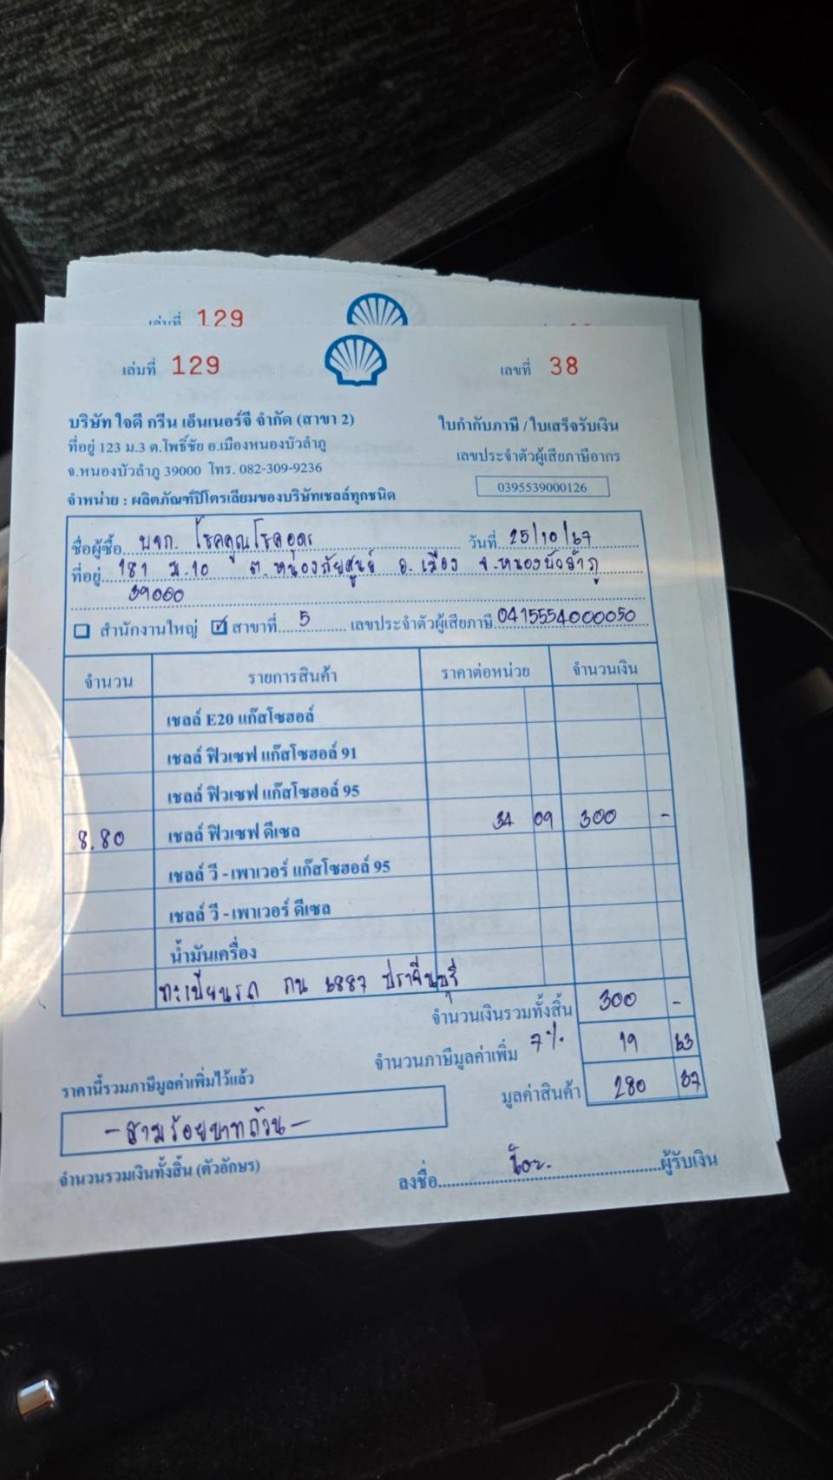 เล่มที่ 129
เล่มที่ 129 เลขที่ 38
บริษัท ใจดี กรีน เอ็นเนอร์จี จำกัด (สาขา 2) ใบกำกับภาษี / ใบเสร็จรับเงิน
ที่อยู่ 123 ม.3 ต.โพธิ์ชัย อ.เมืองหนองบัวลำภู เลขประจำตัวผู้เสียภาษีอากร
จ.หนองบัวลำภู 39000 โทร. 082-309-9236 0395539000126
จำหน่าย : ผลิตภัณฑ์ปิโตรเลียมของบริษัทเชลล์ทุกชนิด
ชื่อผู้ซื้อ บจก. โชคคูณโชคอุดร วันที่ 25/10/67
ที่อยู่ 181 ม.10 ต.หนองภัยศูนย์ อ.เมือง จ.หนองบัวลำภู
39000
สำนักงานใหญ่ ☑ สาขาที่ 5 เลขประจำตัวผู้เสียภาษี 0415554000050
จำนวน รายการสินค้า ราคาต่อหน่วย จำนวนเงิน
เชลล์ E20 แก๊สโซฮอล์
เชลล์ ฟิวเซฟ แก๊สโซฮอล์ 91
เชลล์ ฟิวเซฟ แก๊สโซฮอล์ 95
8.80 เชลล์ ฟิวเซฟ ดีเซล 34 09 300 -
เชลล์ วี - เพาเวอร์ แก๊สโซฮอล์ 95
เชลล์ วี - เพาเวอร์ ดีเซล
น้ำมันเครื่อง
ทะเบียนรถ กน 6887 ปราจีนบุรี
จำนวนเงินรวมทั้งสิ้น 300 -
จำนวนภาษีมูลค่าเพิ่ม 7% 19 63
ราคานี้รวมภาษีมูลค่าเพิ่มไว้แล้ว มูลค่าสินค้า 280 37
- สามร้อยบาทถ้วน -
จำนวนรวมเงินทั้งสิ้น (ตัวอักษร) ลงชื่อ ผู้รับเงิน